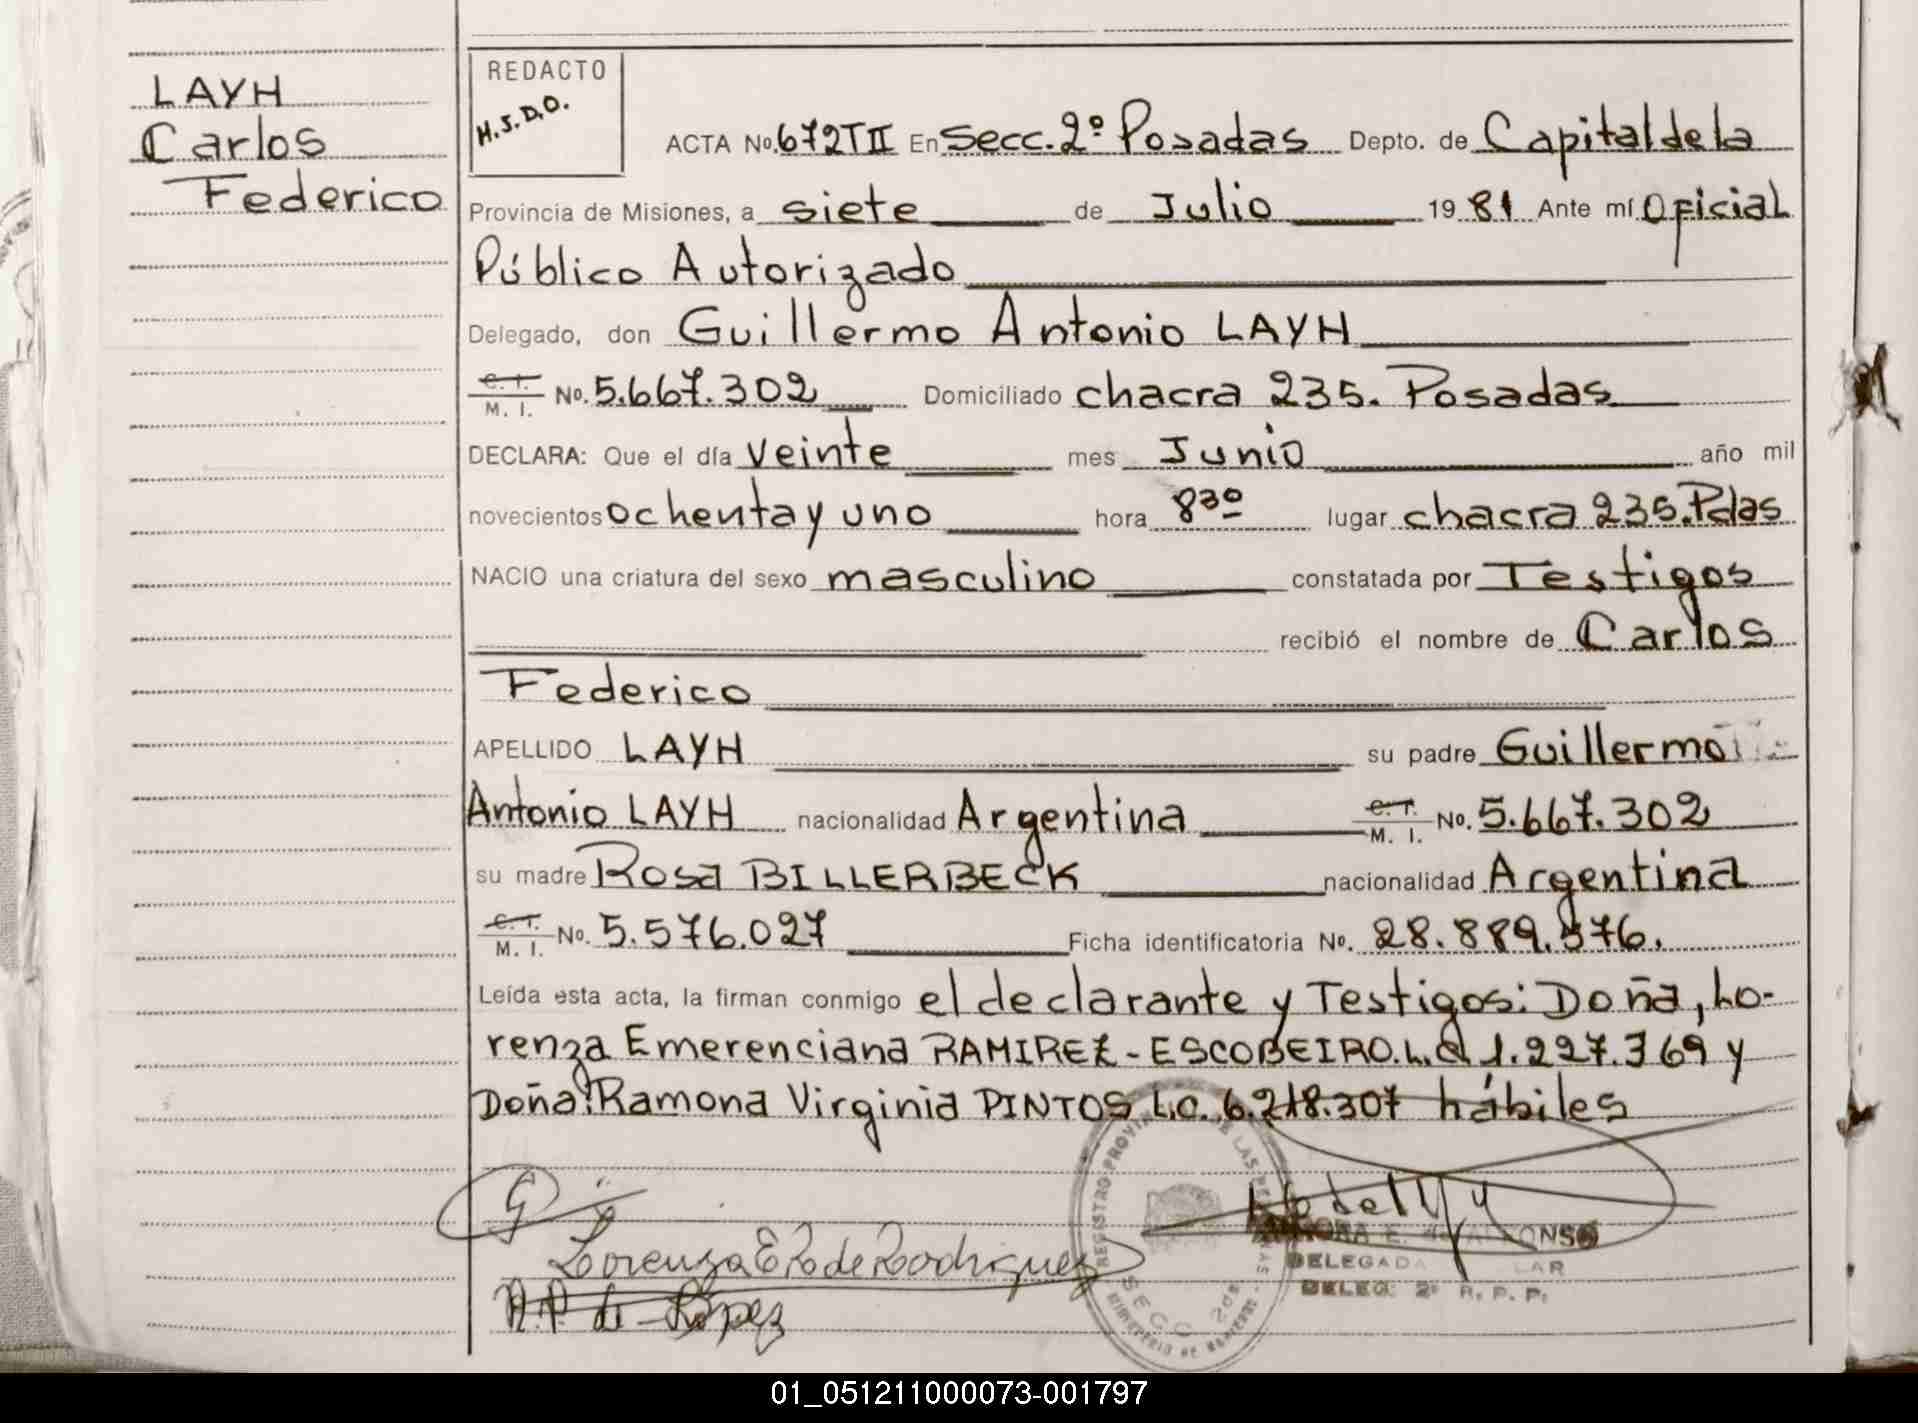 LAYH
Carlos
Federico
REDACTO
H.S.D.O.
ACTA No. 672TII En Secc. 2º Posadas Depto. de Capital de la
Provincia de Misiones, a siete de Julio 1981 Ante mí Oficial
Público Autorizado
Delegado, don Guillermo Antonio LAYH
C. I. M. I. No. 5.667.302 Domiciliado chacra 235. Posadas
DECLARA: Que el día veinte mes Junio año mil
novecientos ochenta y uno hora 8 30 lugar chacra 235. Pdas
NACIO una criatura del sexo masculino constatada por Testigos
recibió el nombre de Carlos
Federico
APELLIDO LAYH su padre Guillermo
Antonio LAYH nacionalidad Argentina C. I. M. I. No. 5.667.302
su madre Rosa BILLERBECK nacionalidad Argentina
C. I. M. I. No. 5.576.027 Ficha identificatoria No. 28.889.576.
Leída esta acta, la firman conmigo el declarante y Testigos: Doña, Lo-
renza Emerenciana RAMIREZ - ESCOBEIRO. L.C 1.227.369 y
Doña: Ramona Virginia PINTOS L.C. 6.218.307 hábiles
Lorenza E R de Rodriguez
R.P. de López
REGISTRO PROVINCIAL DE LAS PERSONAS
SECC 2da
MINISTERIO DE GOBIERNO
DELEGADA
DELEG. 2º R. P. P.
01_051211000073-001797